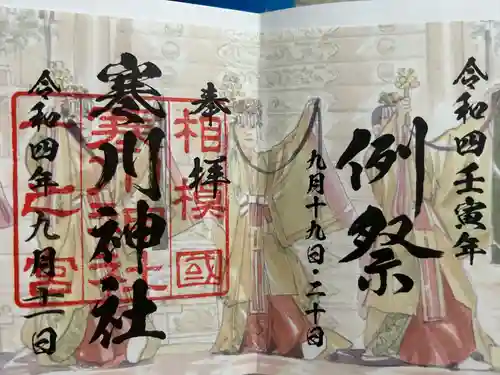 令和四壬寅年
例祭
九月十九日・二十日
奉拝
相模國
寒川神社
一之宮
寒川神社
令和四年九月十一日